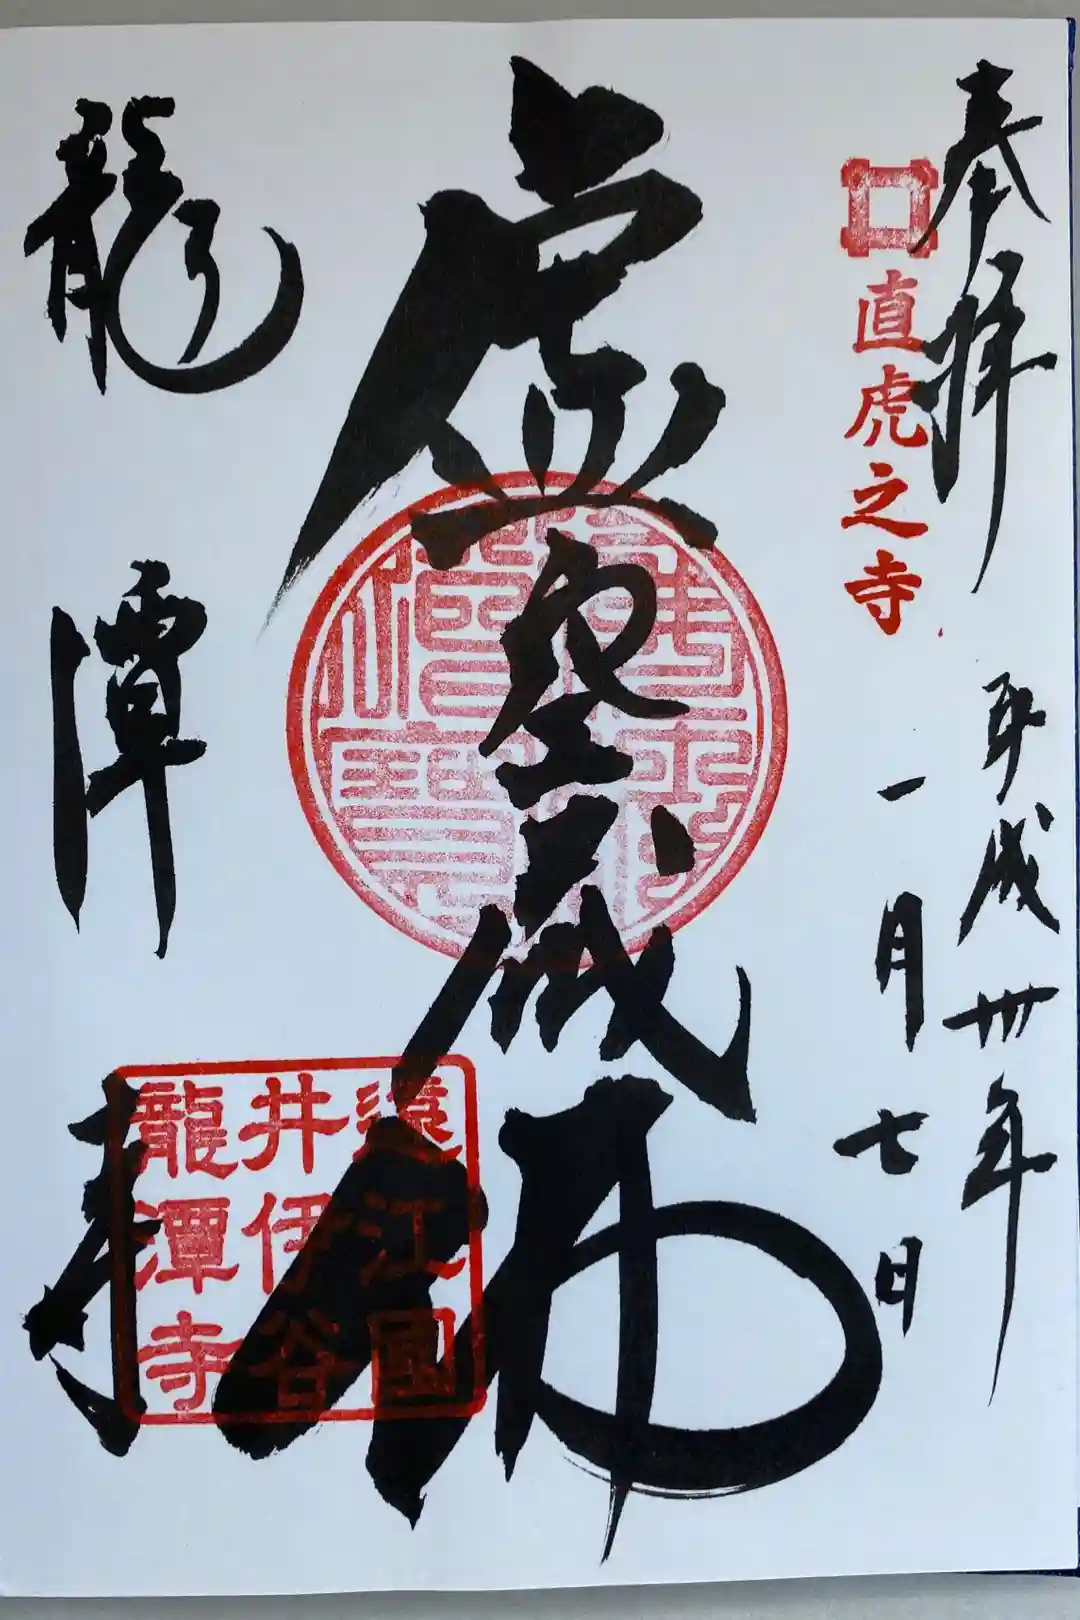 奉拝
平成卅年
一月七日
直虎之寺
虚空蔵佛
龍潭寺
遠江國
井伊谷
龍潭寺